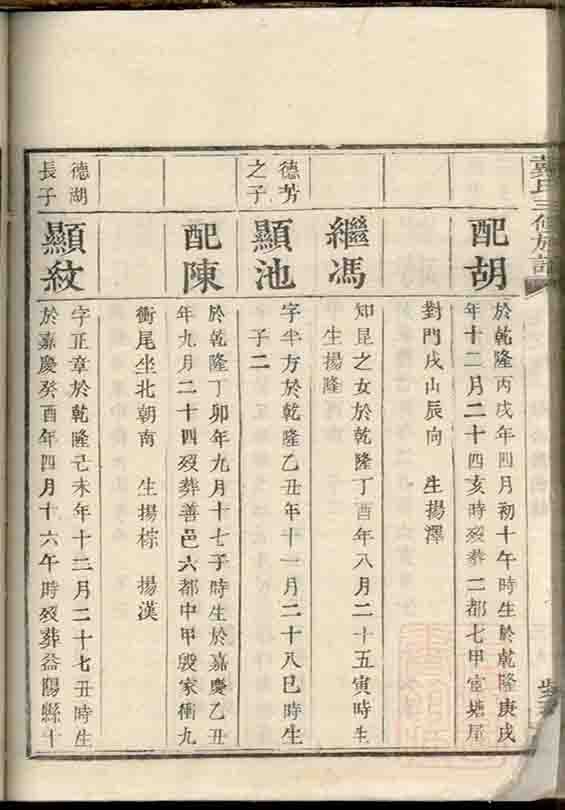 氏三修族記
配胡
於乾隆丙戌年四月初十午時生於乾隆庚戌
年十二月二十四亥時歿葬二都七甲官塘屋
對門戌山辰向 生揚澤
繼馮
知昆之女於乾隆丁酉年八月二十五寅時生
生揚隆
德芳
之子
顯池
字半方於乾隆乙丑年十一月二十八巳時生
子二
配陳
於乾隆丁卯年九月十七子時生於嘉慶乙丑
年九月二十四歿葬善邑六都中甲殷家衝九
衝尾坐北朝南 生揚棕 揚漢
德湖
長子
顯紋
字正章於乾隆己未年十二月二十七丑時生
於嘉慶癸酉年四月十六午時歿葬益陽縣十